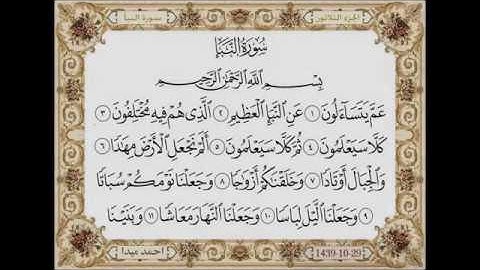 الجزء الثلاثون
سورة النبأ
سُورَةُ النَّبَإِ
بِسْمِ اللَّهِ الرَّحْمَٰنِ الرَّحِيمِ
عَمَّ يَتَسَاءَلُونَ ١ عَنِ النَّبَإِ الْعَظِيمِ ٢ الَّذِي هُمْ فِيهِ مُخْتَلِفُونَ ٣
كَلَّا سَيَعْلَمُونَ ٤ ثُمَّ كَلَّا سَيَعْلَمُونَ ٥ أَلَمْ نَجْعَلِ الْأَرْضَ مِهَٰدًا ٦
وَالْجِبَالَ أَوْتَادًا ٧ وَخَلَقْنَٰكُمْ أَزْوَٰجًا ٨ وَجَعَلْنَا نَوْمَكُمْ سُبَاتًا
٩ وَجَعَلْنَا الَّيْلَ لِبَاسًا ١٠ وَجَعَلْنَا النَّهَارَ مَعَاشًا ١١ وَبَنَيْنَا
1439-10-29
احمد ميدا